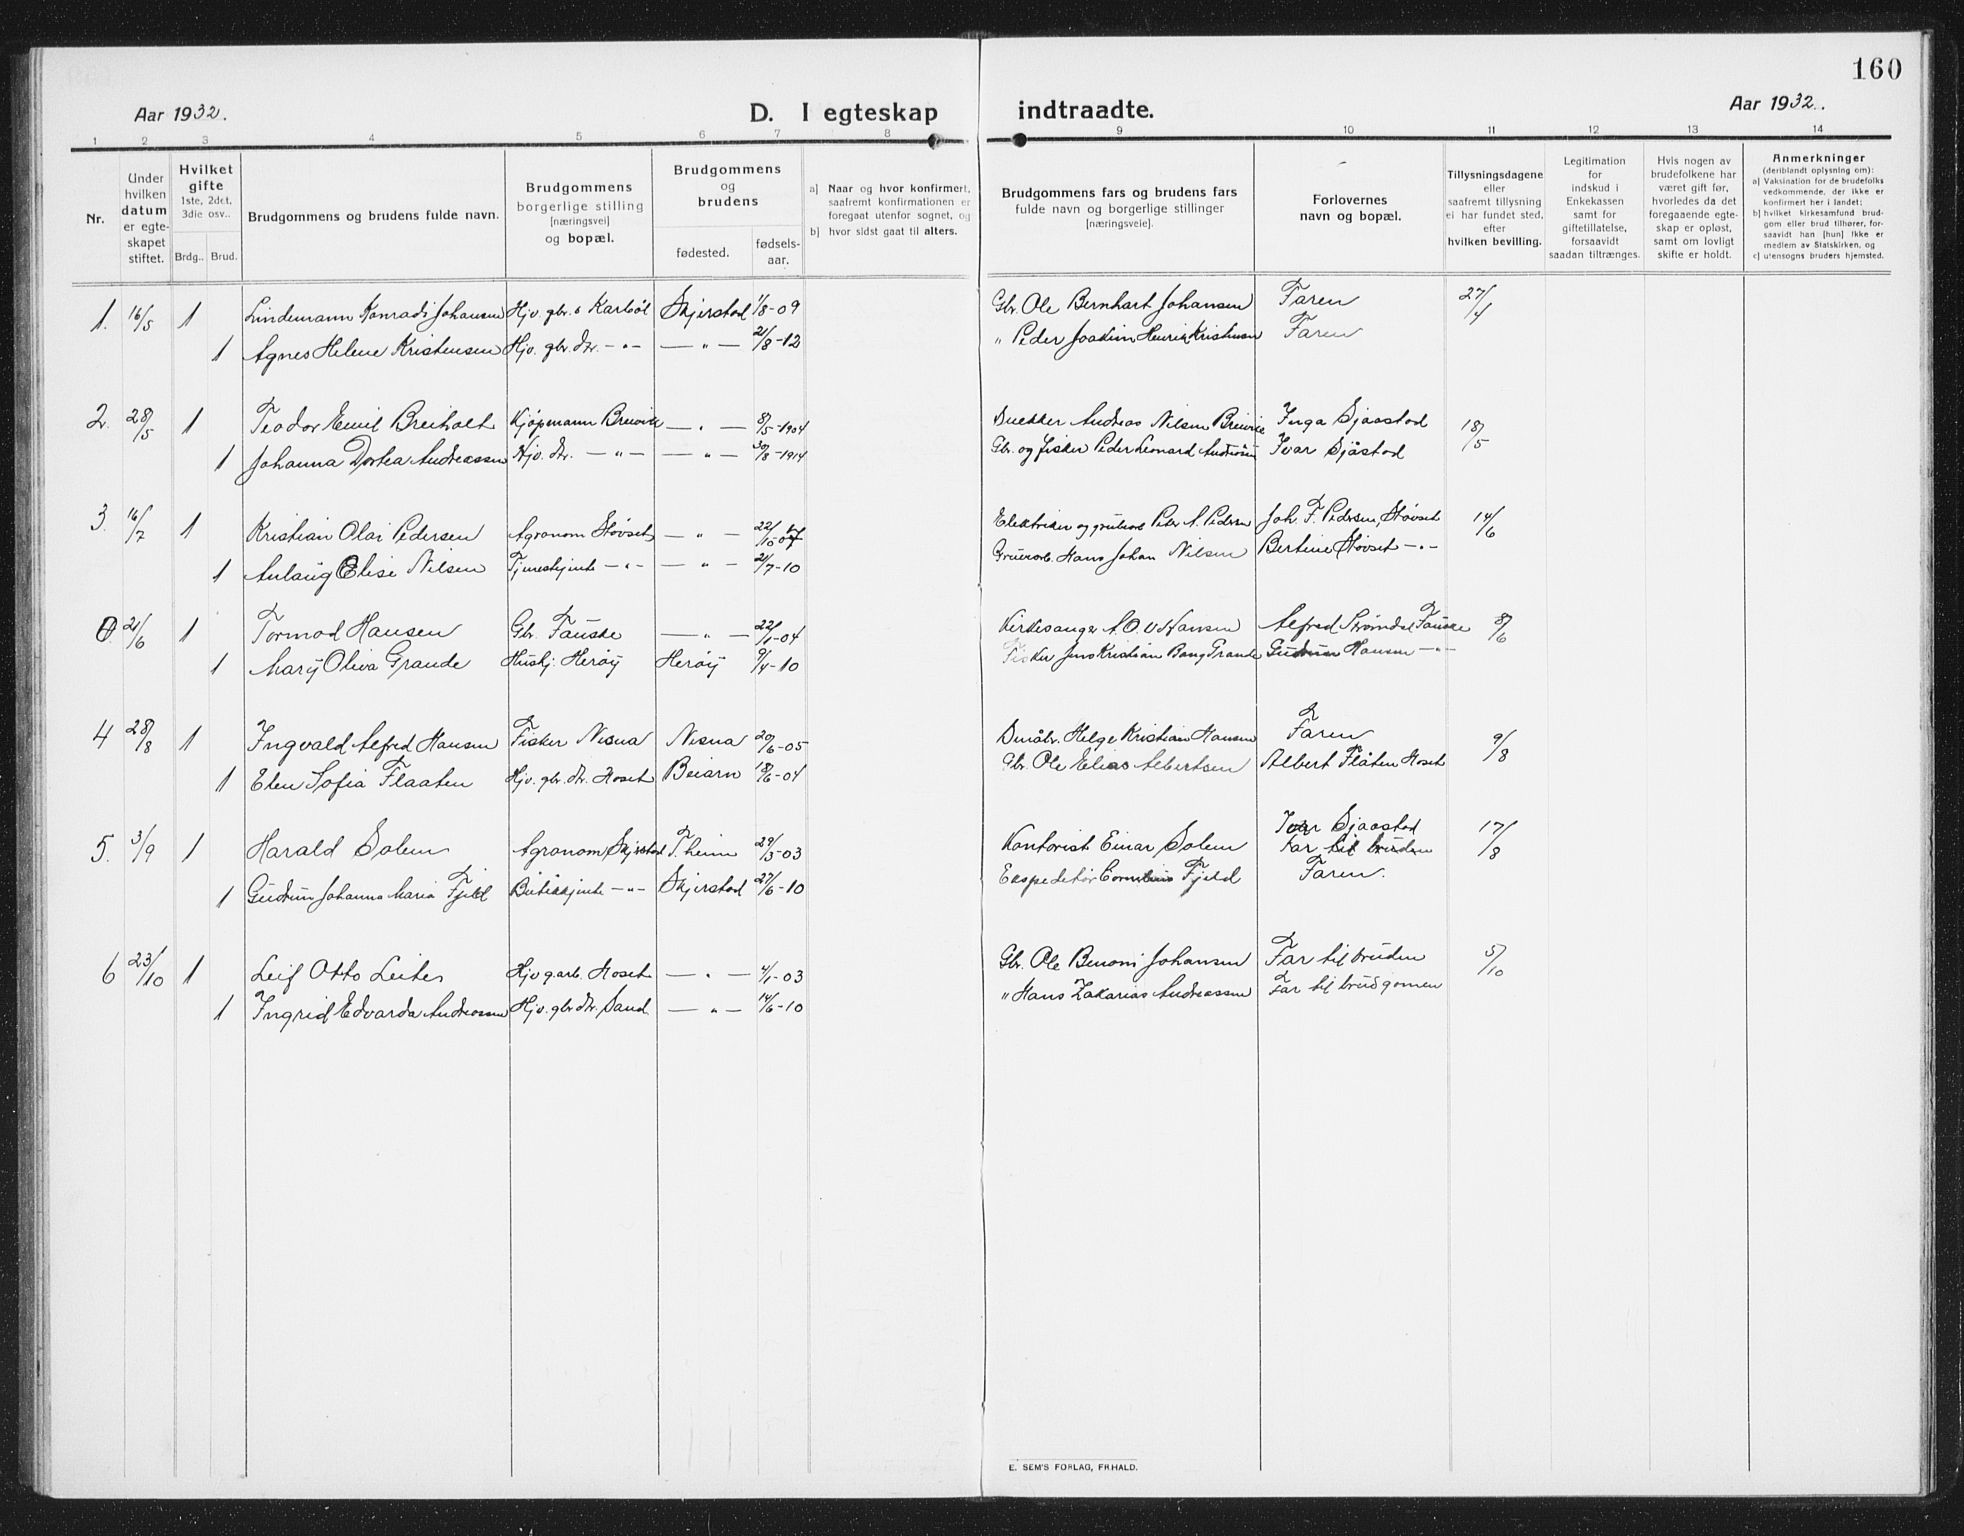 160
Aar 1932.
D. I egteskap indtraadte.
Aar 1932.
1 2 3 4 5 6 7 8 9 10 11 12 13 14
Nr.
Under hvilken datum er egte-skapet stiftet.
Hvilket gifte 1ste, 2det, 3die osv..
Brdg.. Brud.
Brudgommens og brudens fulde navn.
Brudgommens borgerlige stilling [næringsvei] og bopæl.
Brudgommens og brudens
fødested. fødsels-aar.
a) Naar og hvor konfirmert, saafremt konfirmationen er foregaat utenfor sognet, og
b) hvor sidst gaat til alters.
Brudgommens fars og brudens fars fulde navn og borgerlige stillinger [næringsveie].
Forlovernes navn og bopæl.
Tillysningsdagene eller saafremt tillysning ei har fundet sted, efter hvilken bevilling.
Legitimation for indskud i Enkekassen samt for giftetillatelse, forsaavidt saadan tiltrænges.
Hvis nogen av brudefolkene har været gift før, hvorledes da det foregaaende egte-skap er opløst, samt om lovligt skifte er holdt.
Anmerkninger (deriblandt oplysning om):
a) Vaksination for de brudefolks vedkommende, der ikke er konfirmert her i landet;
b) hvilket kirkesamfund brud-gom eller brud tilhører, for-saavidt han [hun] ikke er medlem av Statskirken, og
c) utensogns bruders hjemsted.
1. 16/5 1 Lindemann Konradi Johansen Hjv. gbr. s Karbøl Skjerstad 1/8-09 Gbr. Ole Bernhart Johansen Faren 27/4
1 Agnes Helene Kristensen Hjv. gbr. dtr. — " — — " — 21/8-12 " Peder Joakim Henrik Kristensen Faren
2. 28/5 1 Teodor Emil Breiholt Kjøpmann Breivik — " — 8/5-1904 Snekker Andreas Nilsen Breivik Inga Sjaastad 18/5
1 Johanna Dortea Andreassen Hjv. dtr. — " — — " — 30/8-1914 Gbr. og fisker Peder Leonard Andreassen Ivar Sjåstad
3. 16/7 1 Kristian Olai Pedersen Agronom Støvset — " — 22/10-07 Elektriker og grubearb. Peter A. Pedersen Joh. F. Pedersen, Støvset 14/6
1 Aulaug Elise Nilsen Tjenestejente — " — — " — 21/7-10 Gruearb. Hans Johan Nilsen Bertine Støvset — " —
0 21/6 1 Tormod Hansen Gbr. Fauske — " — 22/1-04 Kirkesanger A. O. V. Hansen Alfred Strømdal Fauske 8/6
1 Mary Oliva Grande Huskj. Herøy Herøy 9/4-10 Fisker Jens Kristian Bang Grande Gudrun Hansen — " —
4 28/8 1 Ingvald Alfred Hansen Fisker Nesna Nesna 20/6-05 Småbr. Helge Kristian Hansen Faren 9/8
1 Elen Sofia Flaaten Hjv. gbr. dtr. Hoset Beiarn 18/6-04 Gbr. Ole Elias Albertsen Albert Flåten Hoset
5. 3/9 1 Harald Solem Agronom Skjerstad T.heim 29/3-03 Kontorist Einar Solem Ivar Sjaastad Far til bruden 17/8
1 Gudrun Johanna Maria Fjeld Butikkjente — " — Skjerstad 27/6-10 Ekspeditør Cornelius Fjeld Faren.
6 23/10 1 Leif Otto Leites Hjv g.arb. Hoset — " — 4/1-03 Gbr. Ole Benoni Johansen Far til bruden 5/10
1 Ingrid Edvarda Andreassen Hjv. gbr dtr. Sand — " — 14/6-10 " Hans Zakarias Andreassen Far til brudgomen
E. SEM'S FORLAG, FR.HALD.